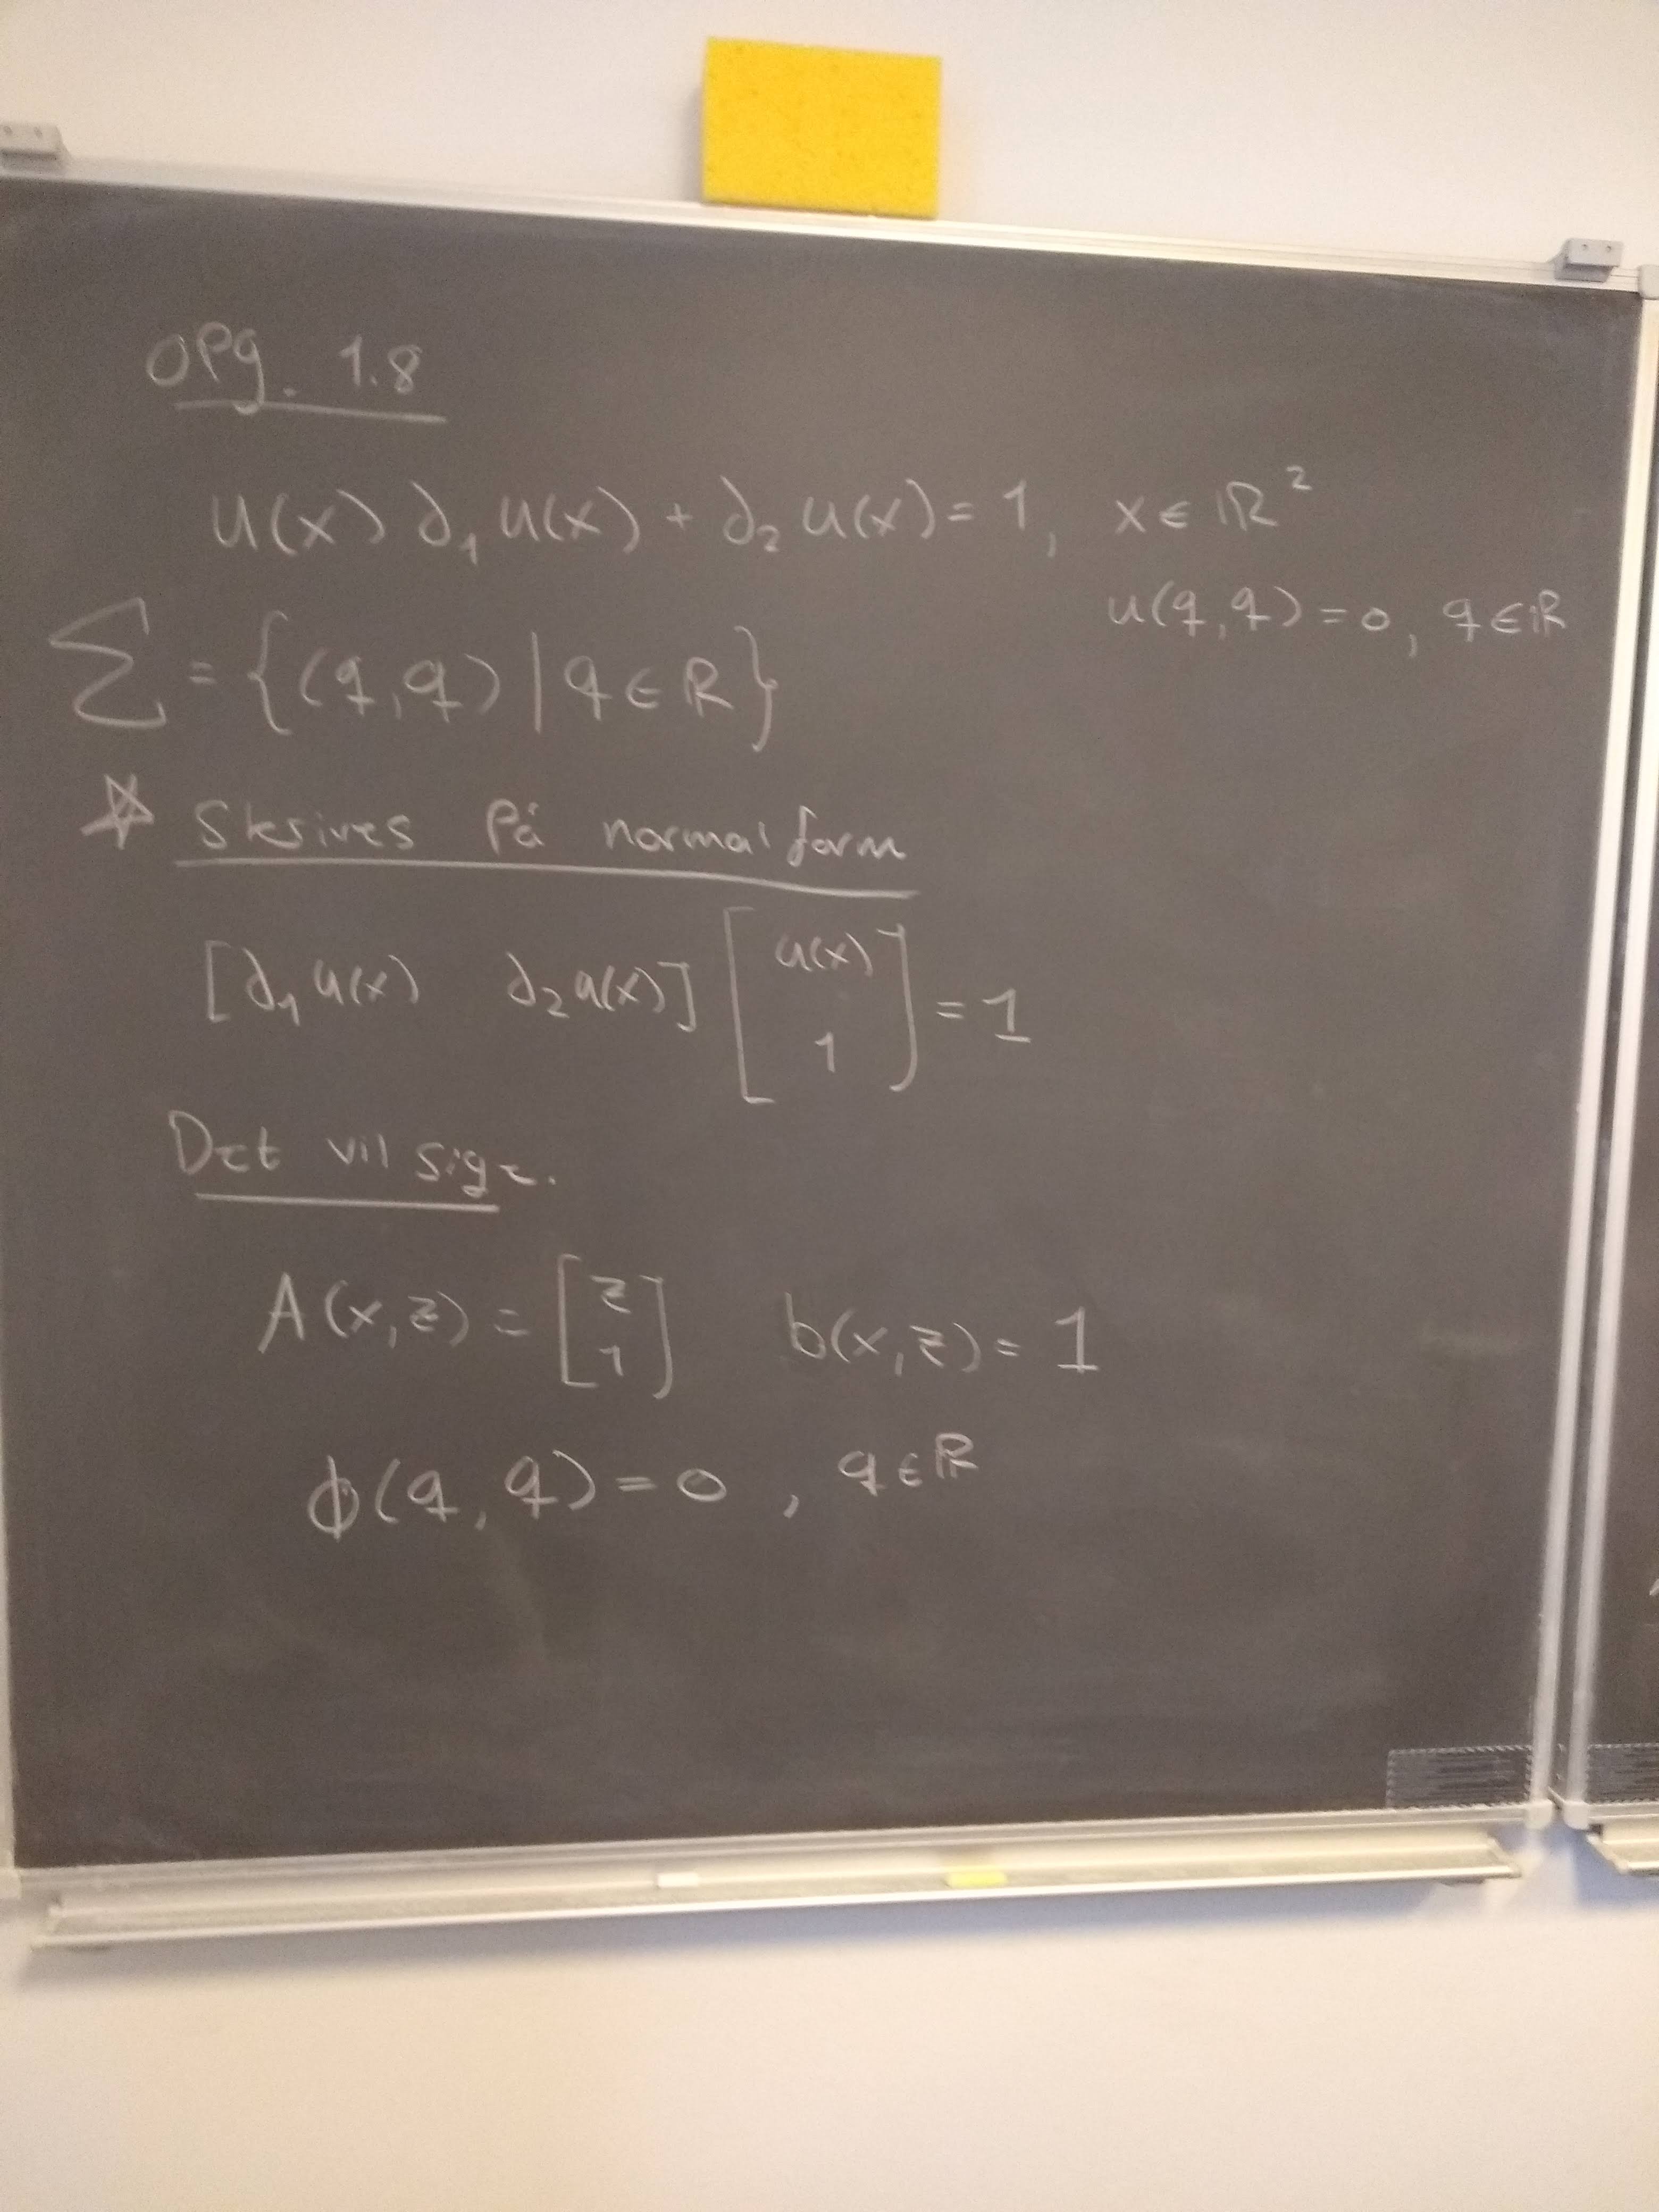 OPg. 1.8
u(x) ∂₁ u(x) + ∂₂ u(x) = 1, x ∈ ℝ²
u(q,q) = 0, q ∈ ℝ
Σ = {(q,q) | q ∈ ℝ}
☆ Skrives På normalform
[∂₁ u(x) ∂₂ u(x)] [u(x) 1] = 1
Det vil sige.
A(x,z) = [z 1] b(x,z) = 1
ϕ(q,q) = 0, q ∈ ℝ